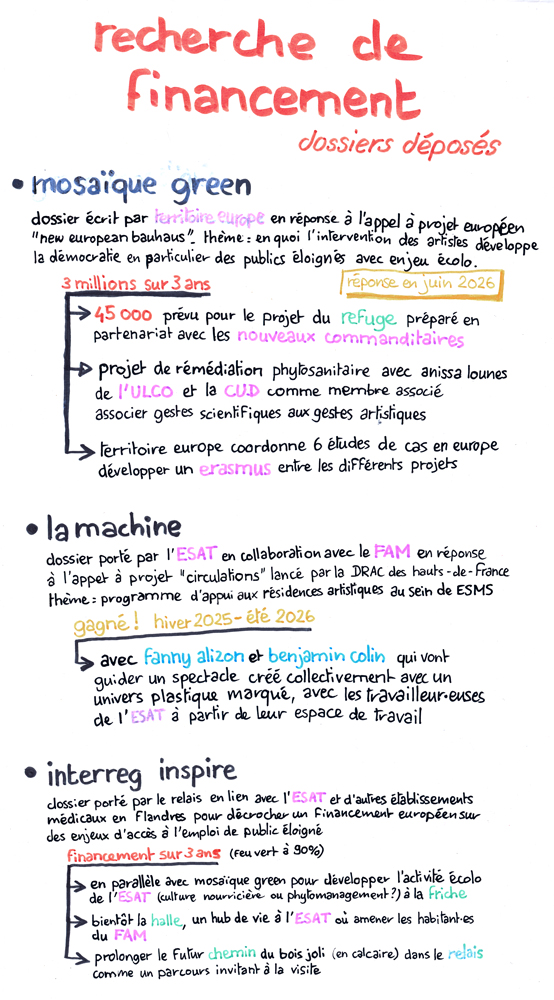 recherche de
financement
dossiers déposés
• mosaïque green
dossier écrit par territoire europe en réponse à l'appel à projet européen
"new european bauhaus". thème : en quoi l'intervention des artistes développe
la démocratie en particulier des publics éloignés avec enjeu écolo.
3 millions sur 3 ans
réponse en juin 2026
45 000 prévu pour le projet du refuge préparé en
partenariat avec les nouveaux commanditaires
projet de rémédiation phytosanitaire avec anissa lounes
de l'ULCO et la CUD comme membre associé
associer gestes scientifiques aux gestes artistiques
territoire europe coordonne 6 études de cas en europe
développer un erasmus entre les différents projets
• la machine
dossier porté par l'ESAT en collaboration avec le FAM en réponse
à l'appel à projet "circulations" lancé par la DRAC des hauts-de-France
thème : programme d'appui aux résidences artistiques au sein de ESMS
gagné ! hiver 2025 - été 2026
avec fanny alizon et benjamin colin qui vont
guider un spectacle créé collectivement avec un
univers plastique marqué, avec les travailleur·euses
de l'ESAT à partir de leur espace de travail
• interreg inspire
dossier porté par le relais en lien avec l'ESAT et d'autres établissements
médicaux en Flandres pour décrocher un financement européen sur
des enjeux d'accès à l'emploi de public éloigné
financement sur 3 ans (feu vert à 90%)
en parallèle avec mosaïque green pour développer l'activité écolo
de l'ESAT (culture nourricière ou phytomanagement ?) à la friche
bientôt la halle, un hub de vie à l'ESAT où amener les habitant·es
du FAM
prolonger le futur chemin du bois joli (en calcaire) dans le relais
comme un parcours invitant à la visite